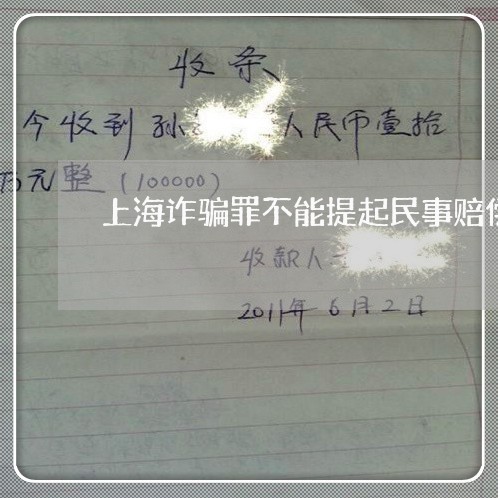 收条
今收到孙 人民币壹拾
万元整（100000）
上海诈骗罪不能提起民事赔偿
收款人
2011年6月2日